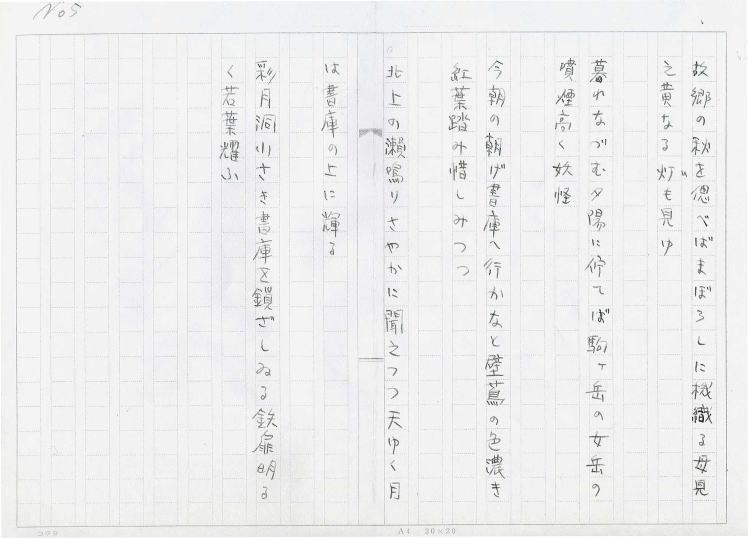 No5
故郷の秋を偲べばまぼろしに機織る母見
え黄なる灯も見ゆ
暮れなづむ夕陽に佇てば駒ヶ岳の女岳の
噴煙高く妖怪
今朝の朝げ書庫へ行かなと壁蔦の色濃き
紅葉踏み惜しみつつ
北上の瀬鳴りさやかに聞えつつ天ゆく月
は書庫の上に輝る
彩月洞小さき書庫を鎖ざしゐる鉄扉明る
く若葉耀ふ
A4 20×20